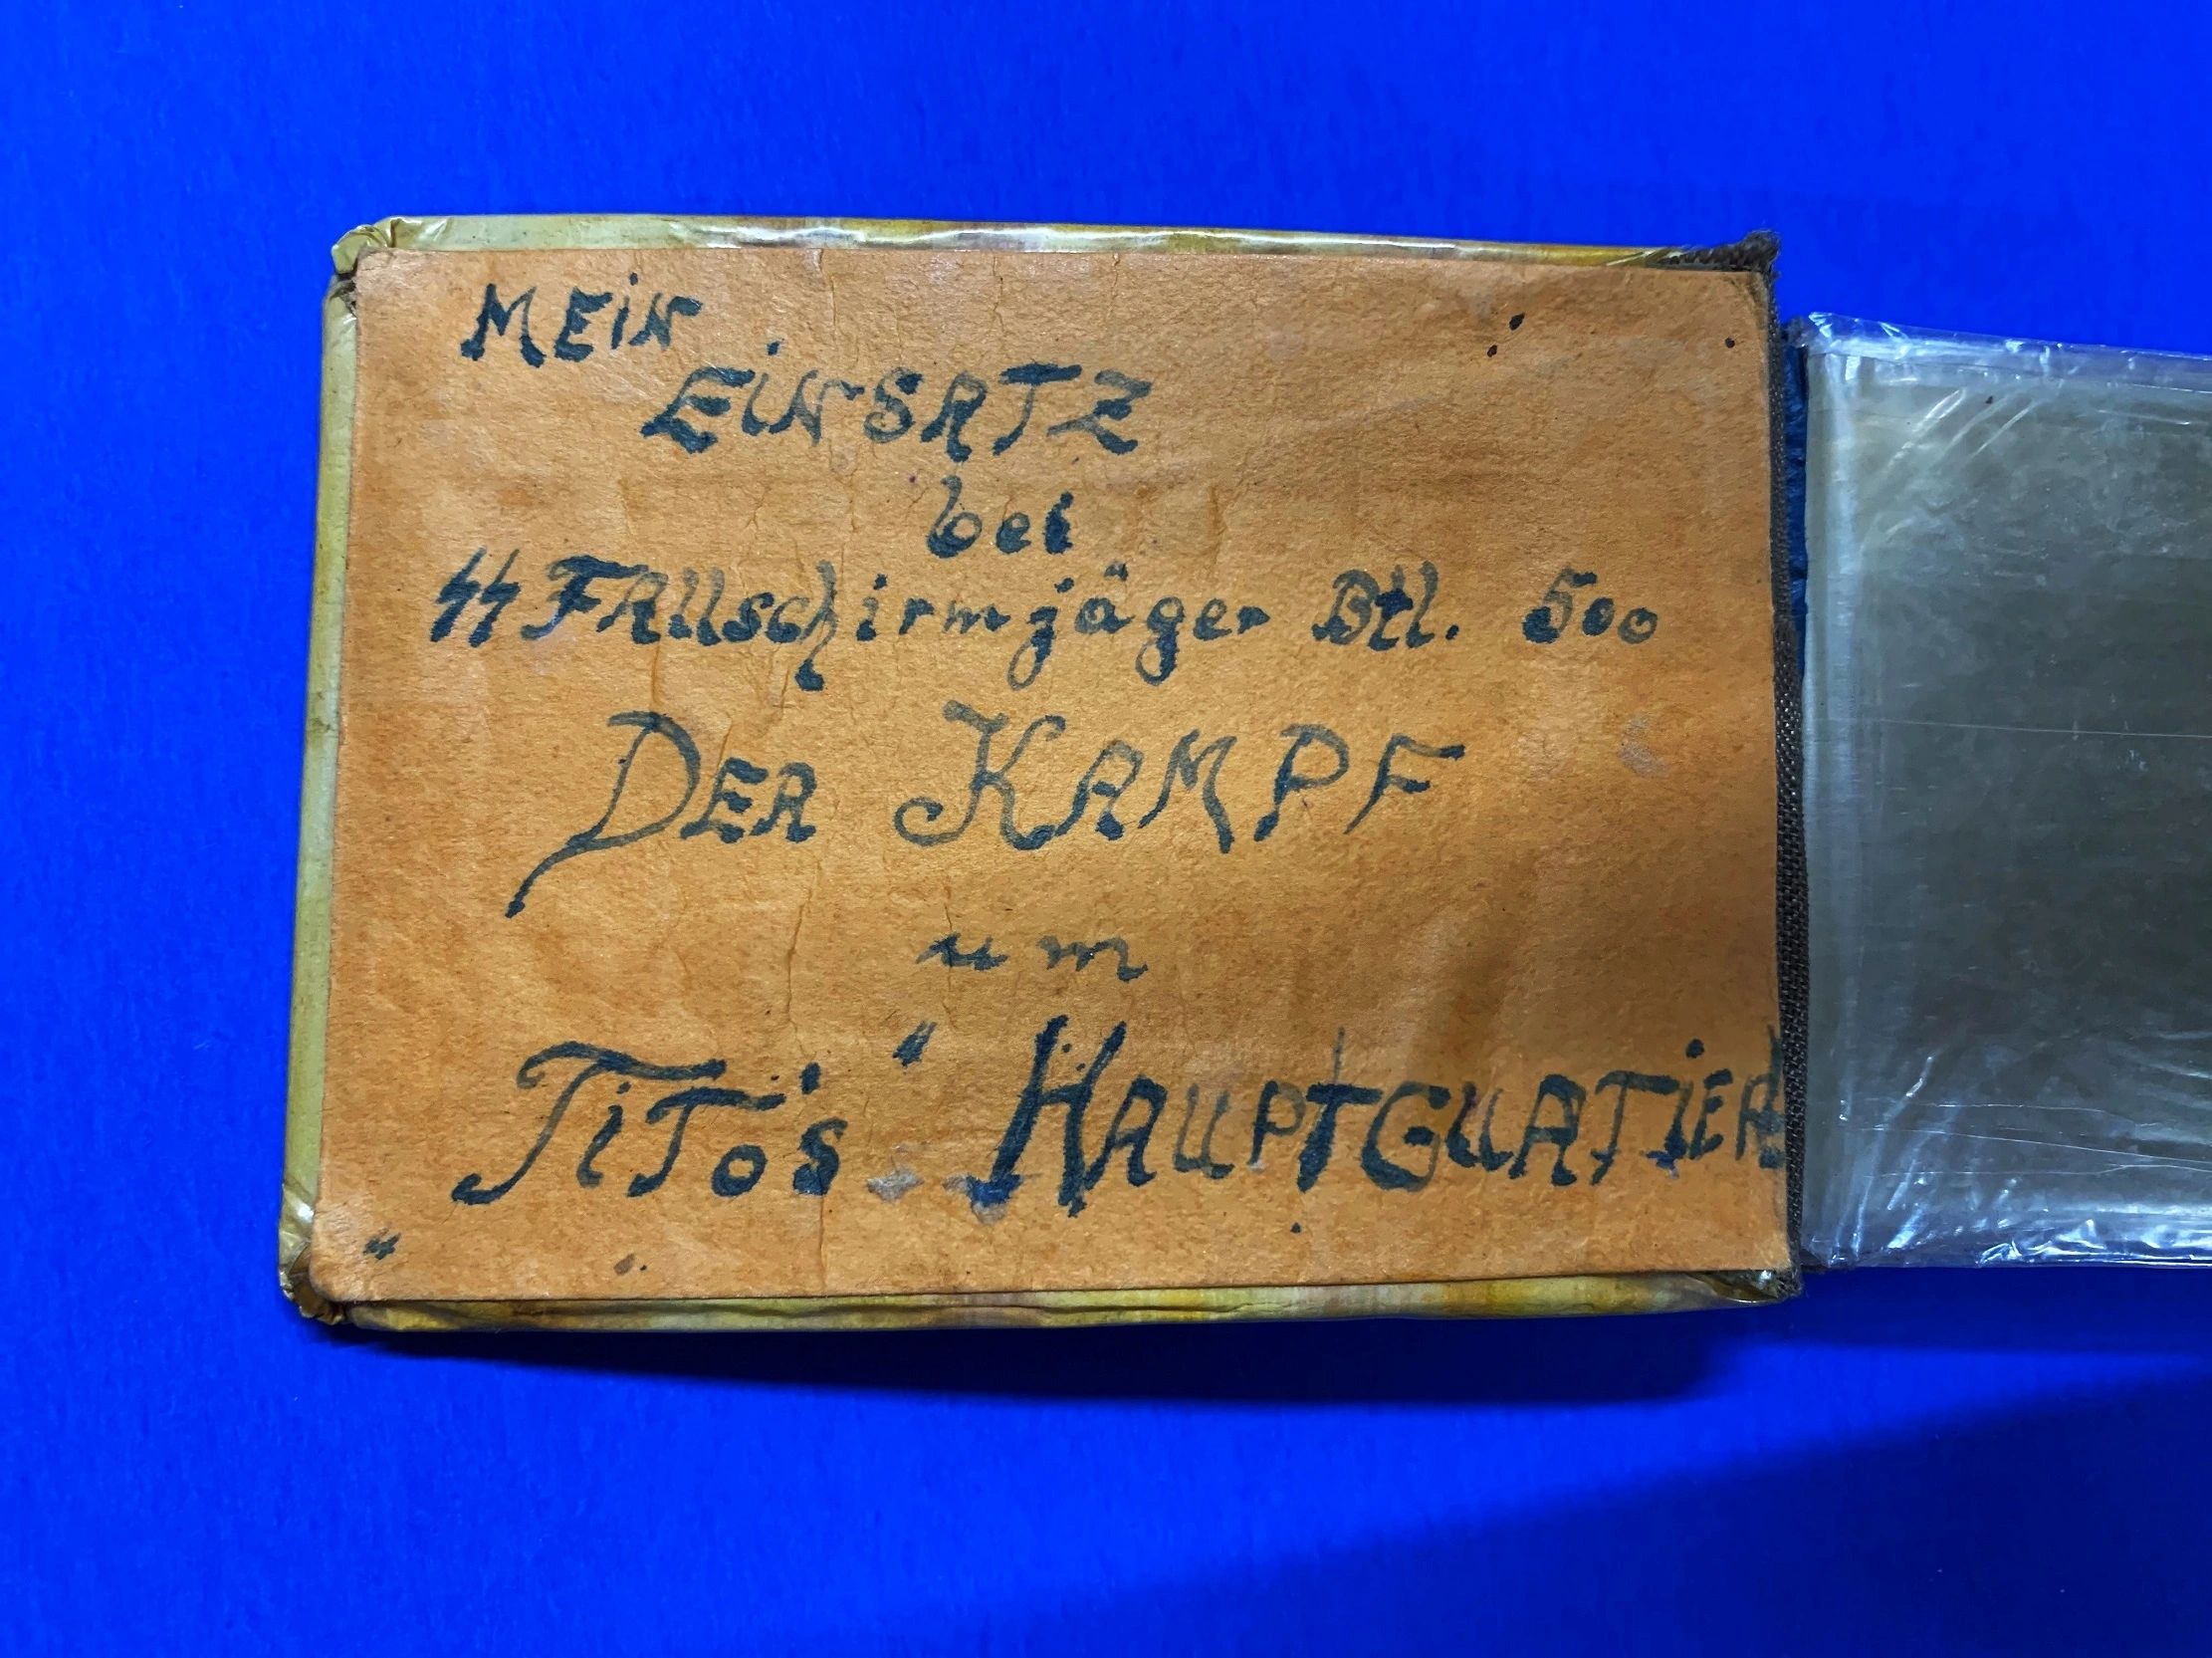 MEiN
EiNSATZ
bei
ϟϟ FAllschirmjäger Btl. 500
DER KAMPF
um
TiTo's " HAUPTGUATiER
"